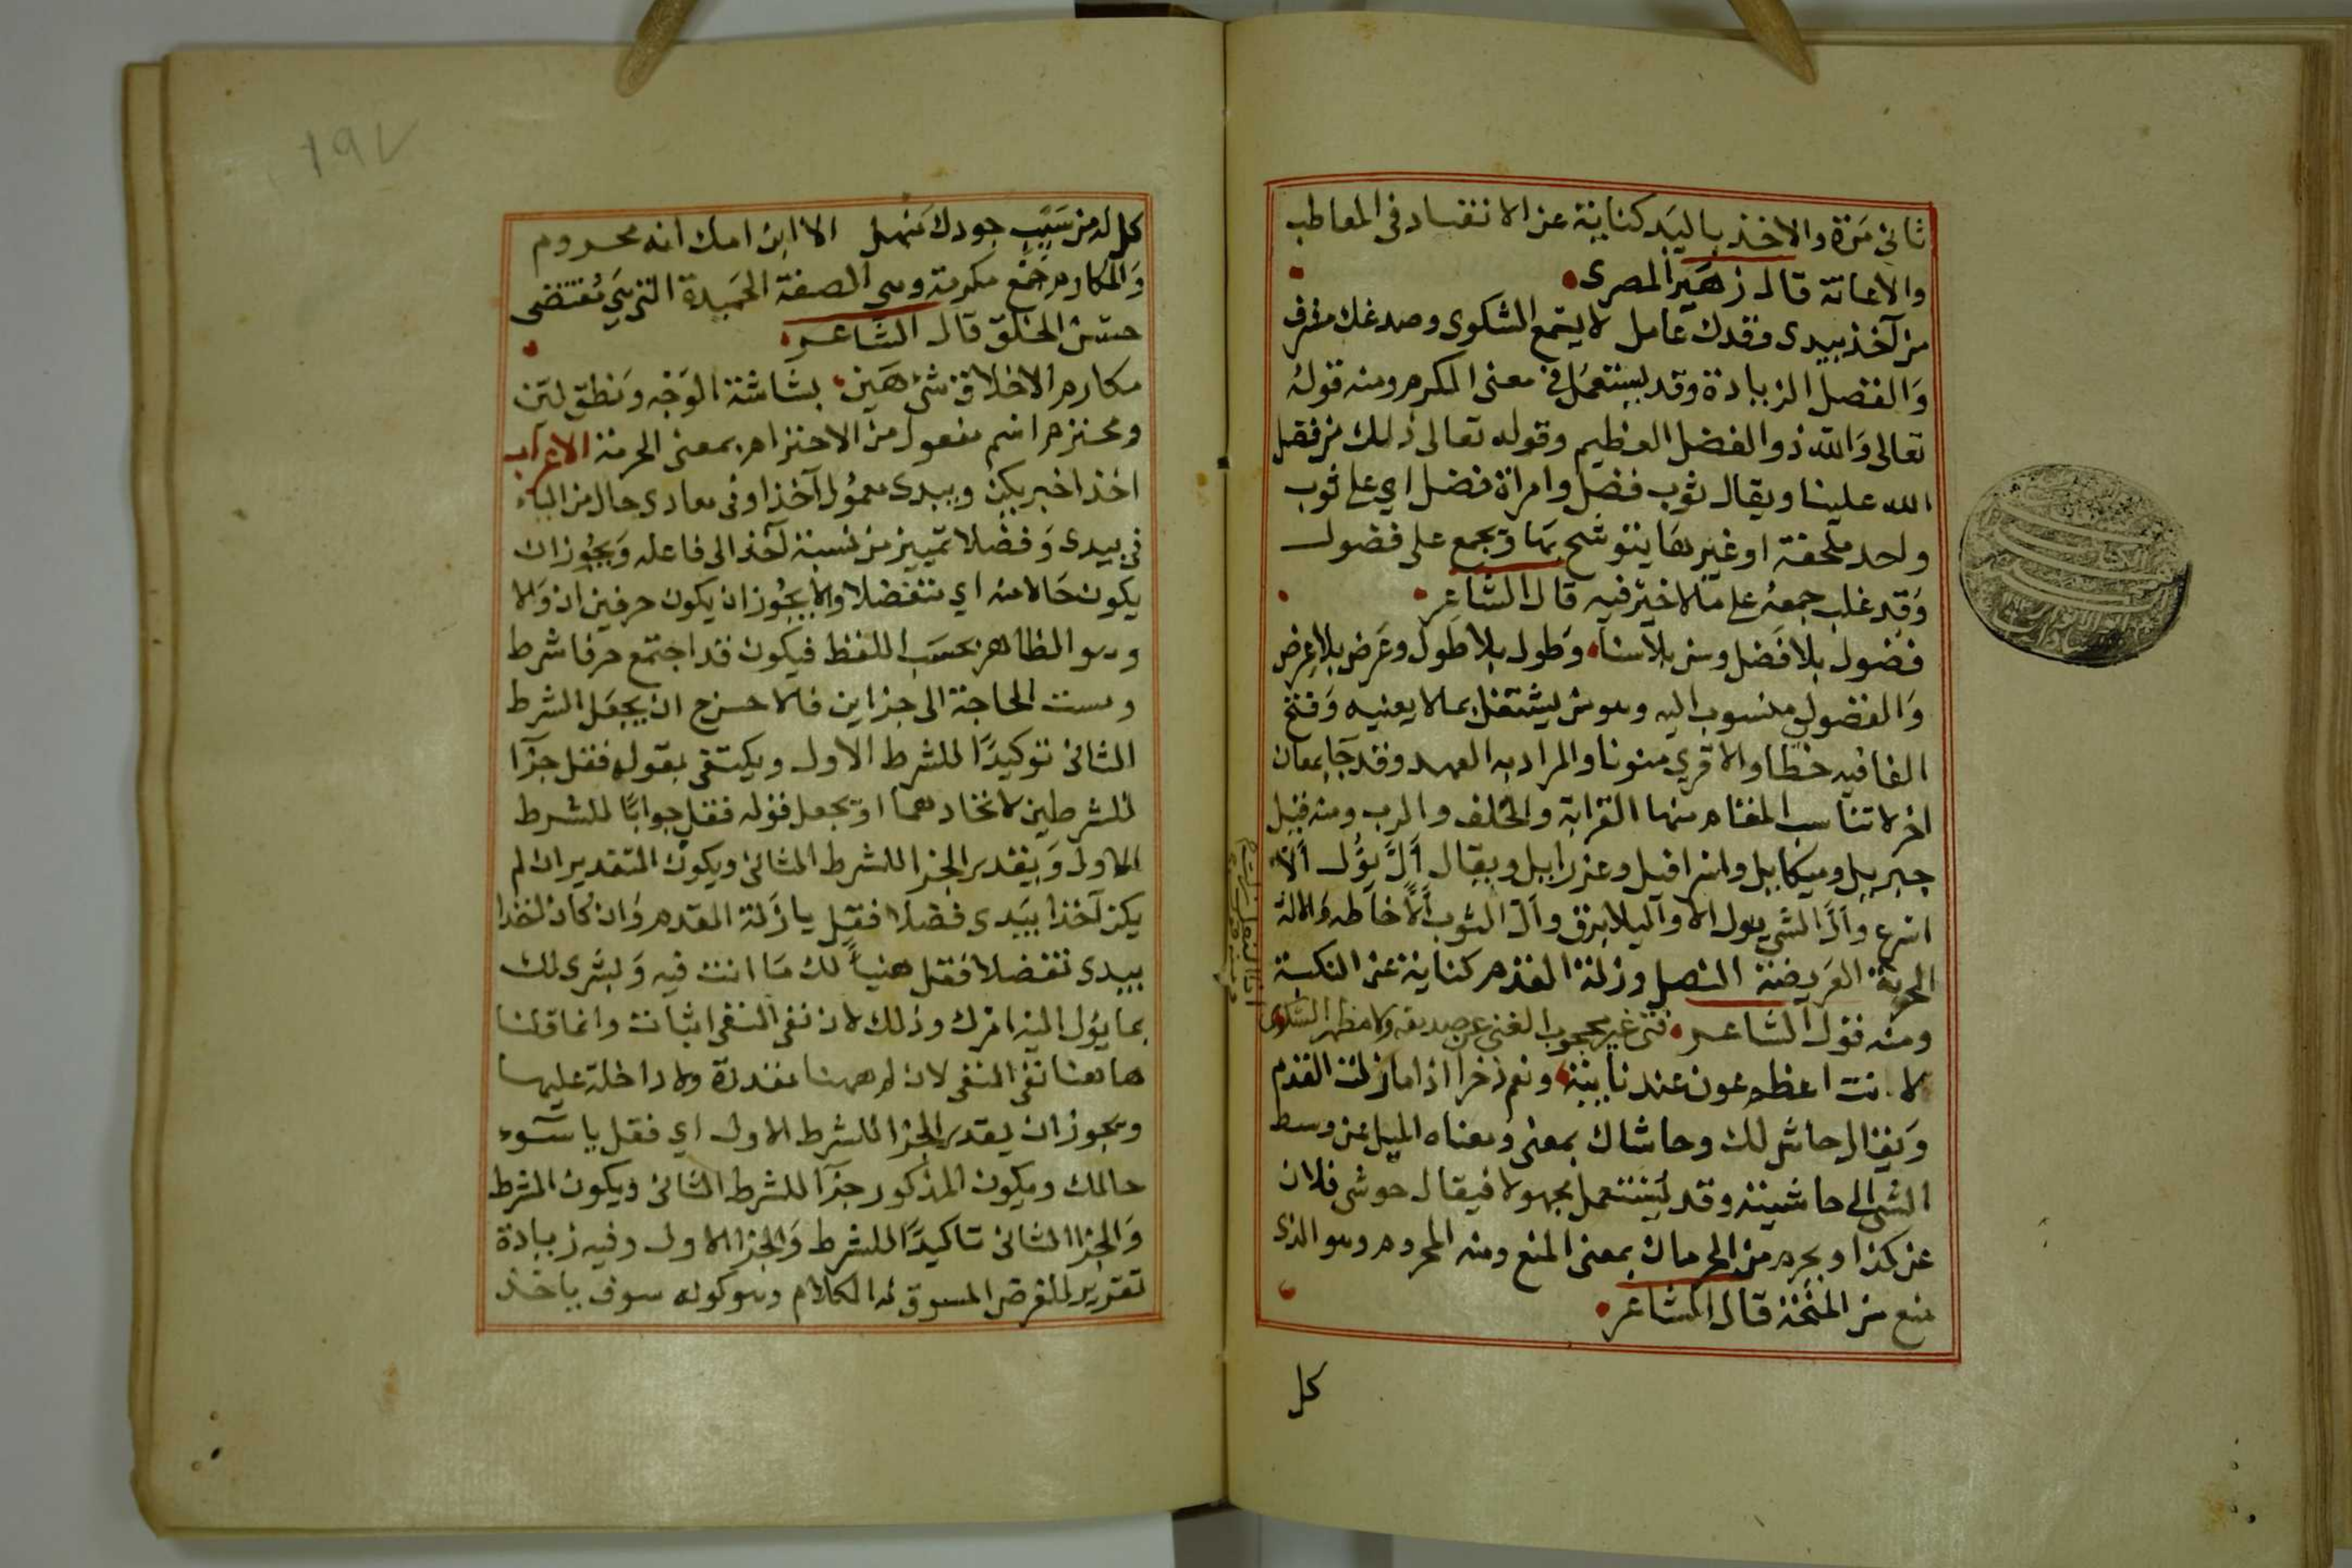 ثاني مَرّة والاخذ باليَد كناية عن الانقاد في المعاطب
والاعانة قال زهَير المصرى
من آخذ بيدى وقدك عامل لا يسمع الشكوى وصدغك مشرف
وَالفضل الزيادة وقد يستعمَل في معنى الكرم ومنه قولهُ
تعالى وَالله ذو الفضل العظيم وقوله تعالى ذلك من فضل
الله علينا ويقال ثوب فضل وامراة فضل اي على ثوب
واحد ملحفة او غيرهَا يتوشح بهَا ويجمع على فضول
وَقد غلب جمعهُ على مَا لا خيْر فيه قال الشاعر
فضول بلا فضل وسن بلا سنا وَطول بلا طَول وعَرض بلا عِرض
وَالفضولي منسوب اليه وهو من يشتغل بما لا يعنيه وَفتح
الفا فيه خطا والا قري منونا والمراد به العهد وقد جَا بمعان
اخر لا تناسب المقام منها القرابة والحلف والرب ومنه قيل
جبرييل وميكاييل واسرافيل وعزراييل ويقال اَلَّ يَؤُل اَلّا
اسرع وَاَلَّ الشي يول الا واليلا برق واَلّ الثوب اَلّاً خاطه وَالالة
الحربة العَريضة النصل وزلة القدم كناية عن النكبة
ومنه قول الشاعر فتى غير محجوب الغنى عن صديقه ولا مظهر الشكوى
اذا النعل زلت
لانت اعظم عون عند نايبة ونعم ذخرا اذا ما زلت القدم
وَيقال حاش لك وحاشاك بمعنى وَمعناه الميل عن وسط
الشي الى حاشيته وقد يَستعمل مجهولا فيقال حوشى فلان
عن كذا ويحرم من الحرمان بمعنى المنع ومنه المحروم وهو الذى
منع من المنحة قال الشاعر
كل
١٩٧
كل له من سَيبِ جودك مَنهل الا ابن امك انه محروم
وَالمكارم جَمْع مكرمة وهي الصفة الحَميدة التي هي مُقتضى
حسْن الخلق قال الشاعر
مكارم الاخلاق شيْء هَين بشَاشة الوَجْه وَنطق لين
ومحترم اسْم مفعول من الاحترام بمعنى الحرمة الاعراب
اخذا خبر يكن وبيدى معمُول آخذا وفي معادى حال من الياء
في بيدى وَفضلا تمييز من نسبة آخذ الى فاعله وَيجُوز ان
يكون حَالا منه اي متفضلا والا يجُوز ان يكون حرفين ان وَلا
وهو الظاهر بحسَب اللفظ فيكون قد اجتمع حرفا شرط
ومست الحاجة الى جزاين فلا حرج ان يجعَل الشرط
الثاني توكيدًا للشرط الاول ويكتفى بقوله فقل جزآ
للشرطين لاتحادهما او يجعل قوله فقل جوابًا للشرط
الاول وَيقدر الجزا للشرط الثاني ويكون التقدير ان لم
يكن آخذا بيَدى فضلا فقل يا زَلة القدم وَان كان اخذا
بيدى تفضلا فقل هنيأً لك مَا انت فيه وَبشرى لك
بما يؤل اليه امرك وذلك لان نفى النفى اثبات وانما قلنا
هاهنا نفى النفى لان لم ههنا مقدرة ولا داخلة عليها
ويجوز ان يقدر الجزا للشرط الاول اي فقل يا سوء
حالك ويكون المذكور جزآ للشرط الثاني ويكون الشرط
وَالجزا الثاني تاكيدًا للشرط وَالجزا الاول وفيه زيادة
تقرير للغرض المسوق له الكلام وهو كونه سوف ياخذ